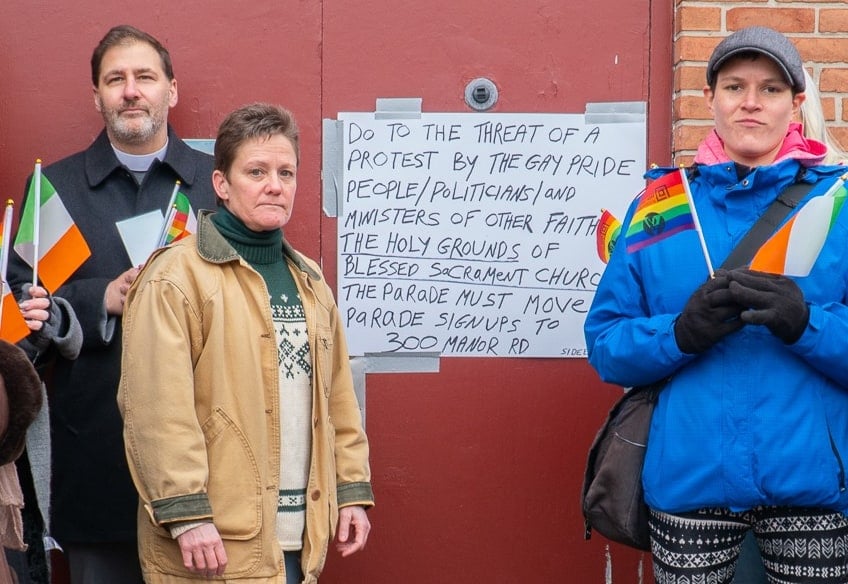 DO TO THE THREAT OF A
PROTEST BY THE GAY PRIDE
PEOPLE/POLITICIANS/AND
MINISTERS OF OTHER FAITH
THE HOLY GROUNDS OF
BLESSED SACRAMENT CHURC
THE PARADE MUST MOVE
PARADE SIGNUPS TO
300 MANOR RD
SIDE